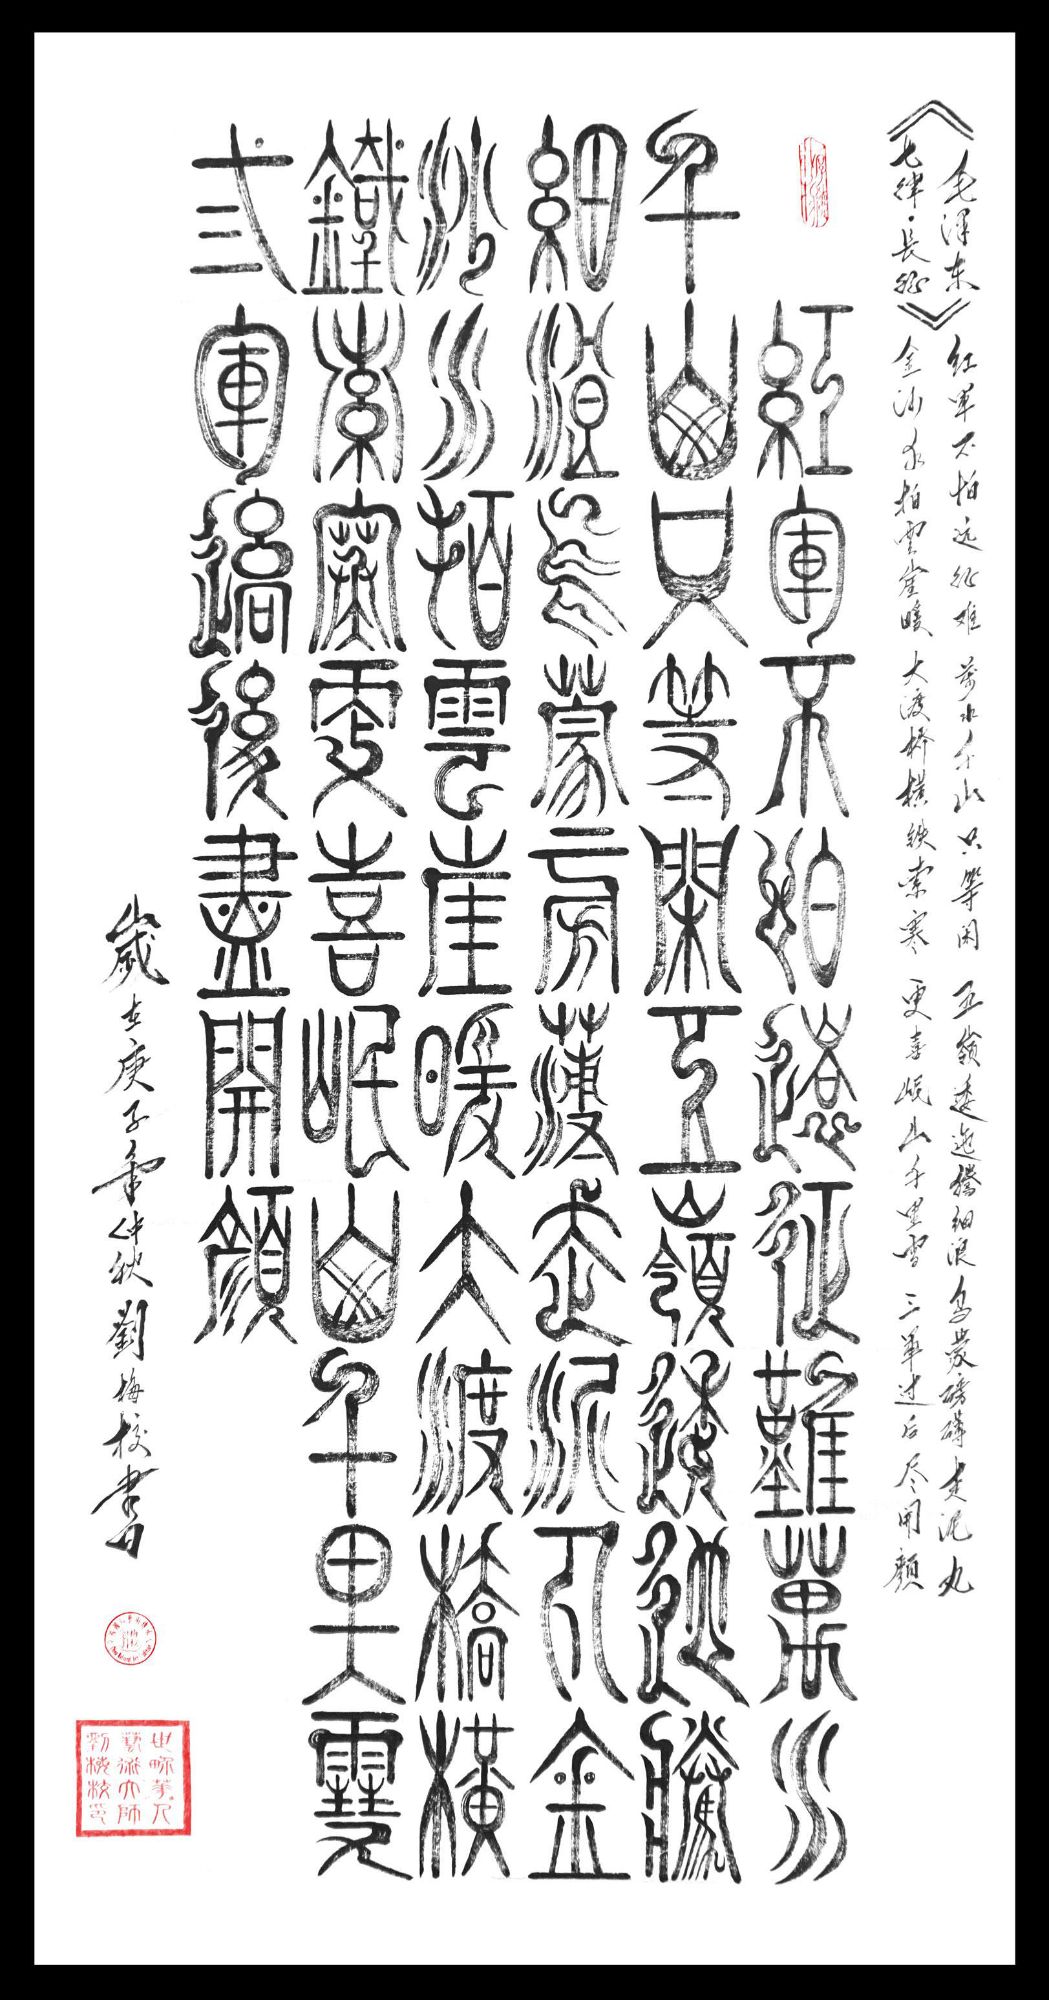 《毛泽东
七律·長征》
红军不怕远征难 萬水千山只等闲 五嶺逶迤騰细浪 乌蒙磅礴走泥丸
金沙水拍雲崖暖 大渡桥横铁索寒 更喜岷山千里雪 三军过后尽开颜
紅軍不怕遠征難萬水
千山只等閑五嶺逶迤騰
細浪烏蒙旁薄走泥丸金
沙水拍雲崖暖大渡橋橫
鐵索寒更喜岷山千里雪
弎軍過後盡開顏
歲在庚子年仲秋劉梅校書
世界華人
藝術大師
劉梅校印